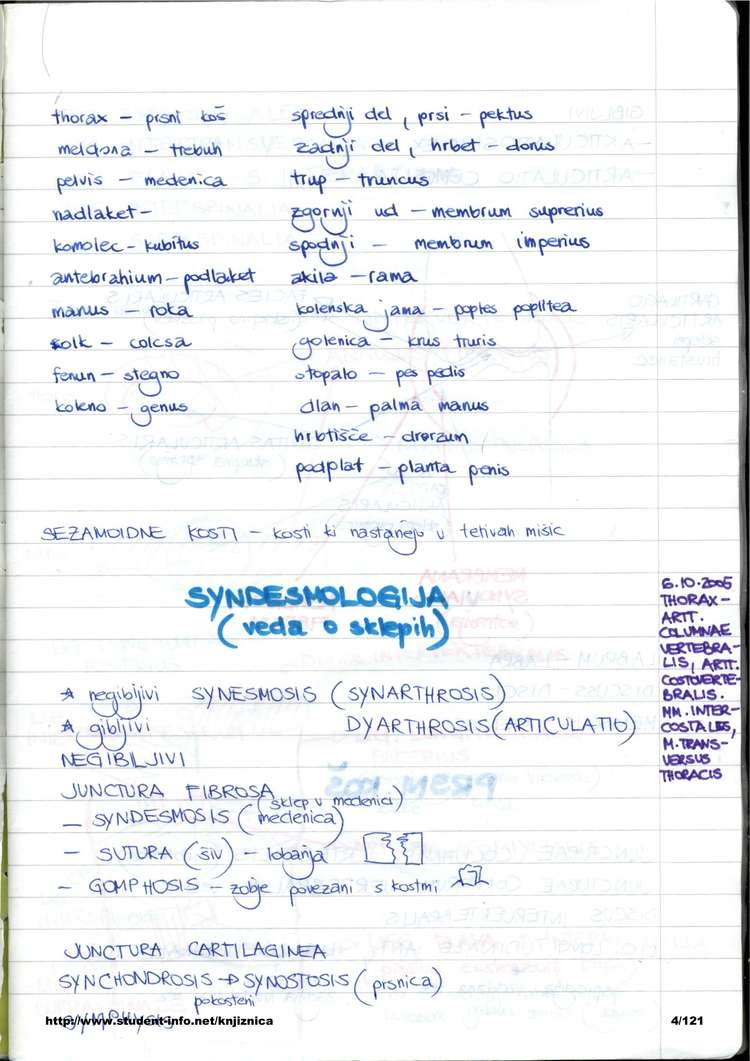 thorax – prsni koš
meldona – trebuh
pelvis – medenica
nadlaket –
komolec – kubitus
antebrahium – podlaket
manus – roka
kolk – colcsa
femun – stegno
koleno – genus
sprednji del, prsi – pektus
zadnji del, hrbet – dorus
trup – truncus
zgornji ud – membrum suprerius
spodnji – membrum imperius
akila – rama
kolenska jama – poples poplitea
golenica – krus truris
stopalo – pes pedis
dlan – palma manus
hrbtišče – drorzum
podplat – planta penis
SEZAMOIDNE KOSTI – kosti ki nastanejo v tetivah mišic
SYNDESMOLOGIJA
(veda o sklepih)
6.10.2005
THORAX –
ARTT.
COLUMNAE
VERTEBRA-
LIS, ARTT.
COSTOVERTE-
BRALIS.
MM. INTER-
COSTALES,
M. TRANS-
VERSUS
THORACIS
negibljivi SYNESMOSIS (SYNARTHROSIS)
gibljivi DYARTHROSIS (ARTICULATIO)
NEGIBLJIVI
JUNCTURA FIBROSA
(sklep v medenici)
– SYNDESMOSIS (medenica)
– SUTURA (šiv) – lobanja
– GOMPHOSIS – zobje povezani s kostmi
JUNCTURA CARTILAGINEA
SYNCHONDROSIS → SYNOSTOSIS (prsnica)
pokosteni
SYMPHYSIS
http://www.student-info.net/knjiznica
4/121